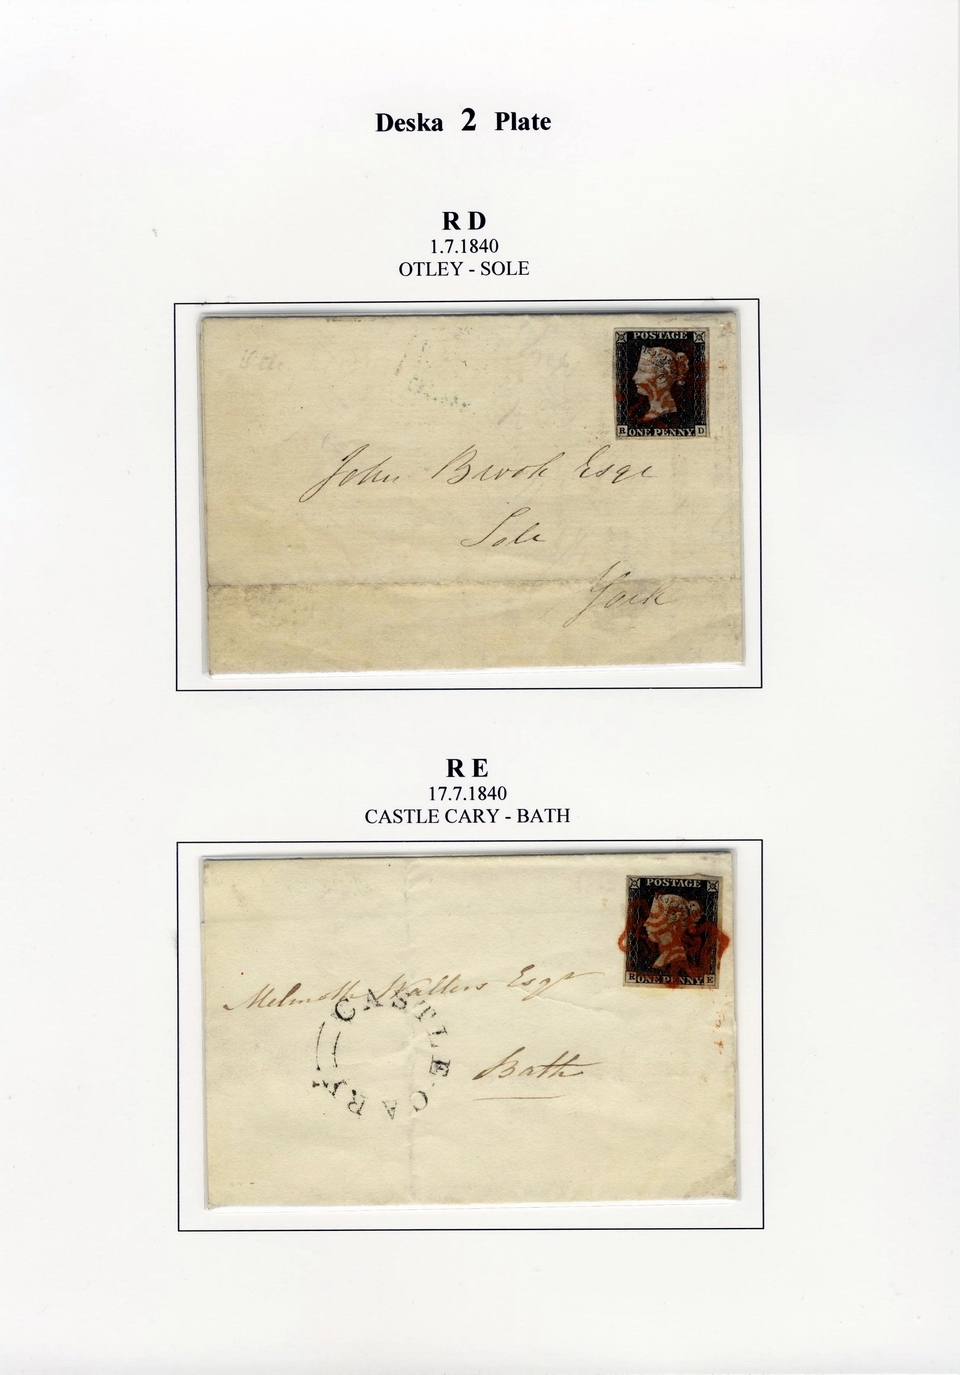 Deska 2 Plate
R D
1.7.1840
OTLEY - SOLE
POSTAGE
R ONE PENNY D
John Brook Esqr
Sole
York
R E
17.7.1840
CASTLE CARY - BATH
POSTAGE
R ONE PENNY E
Melmoth Walters Esqr
CASTLE CARY
Bath